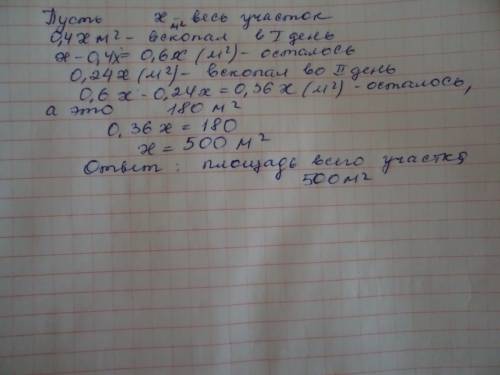 Пусть х м² - весь участок
0,4х м² - вскопал в I день
х - 0,4х = 0,6х (м²) - осталось
0,24х (м²) - вскопал во II день
0,6х - 0,24х = 0,36х (м²) - осталось,
а это 180 м²
0,36х = 180
х = 500 м²
Ответ: площадь всего участка
500 м²